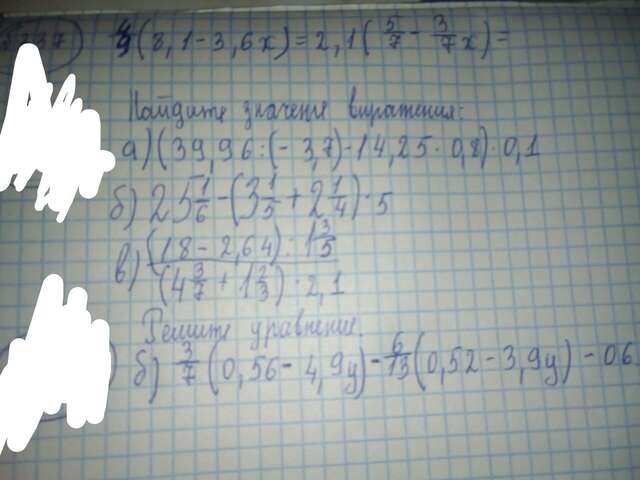 4/9(8,1-3,6x)=2,1(5/7-3/7x)=
Найдите значение выражения:
а)(39,96:(-3,7)-14,25·0,8)·0,1
б)25 1/6-(3 1/5+2 1/4)·5
в)(18-2,64):1 3/5
(4 3/7+1 2/3)·2,1
Решите уравнение.
б)3/7(0,56-4,9у)-6/13(0,52-3,9у)-06